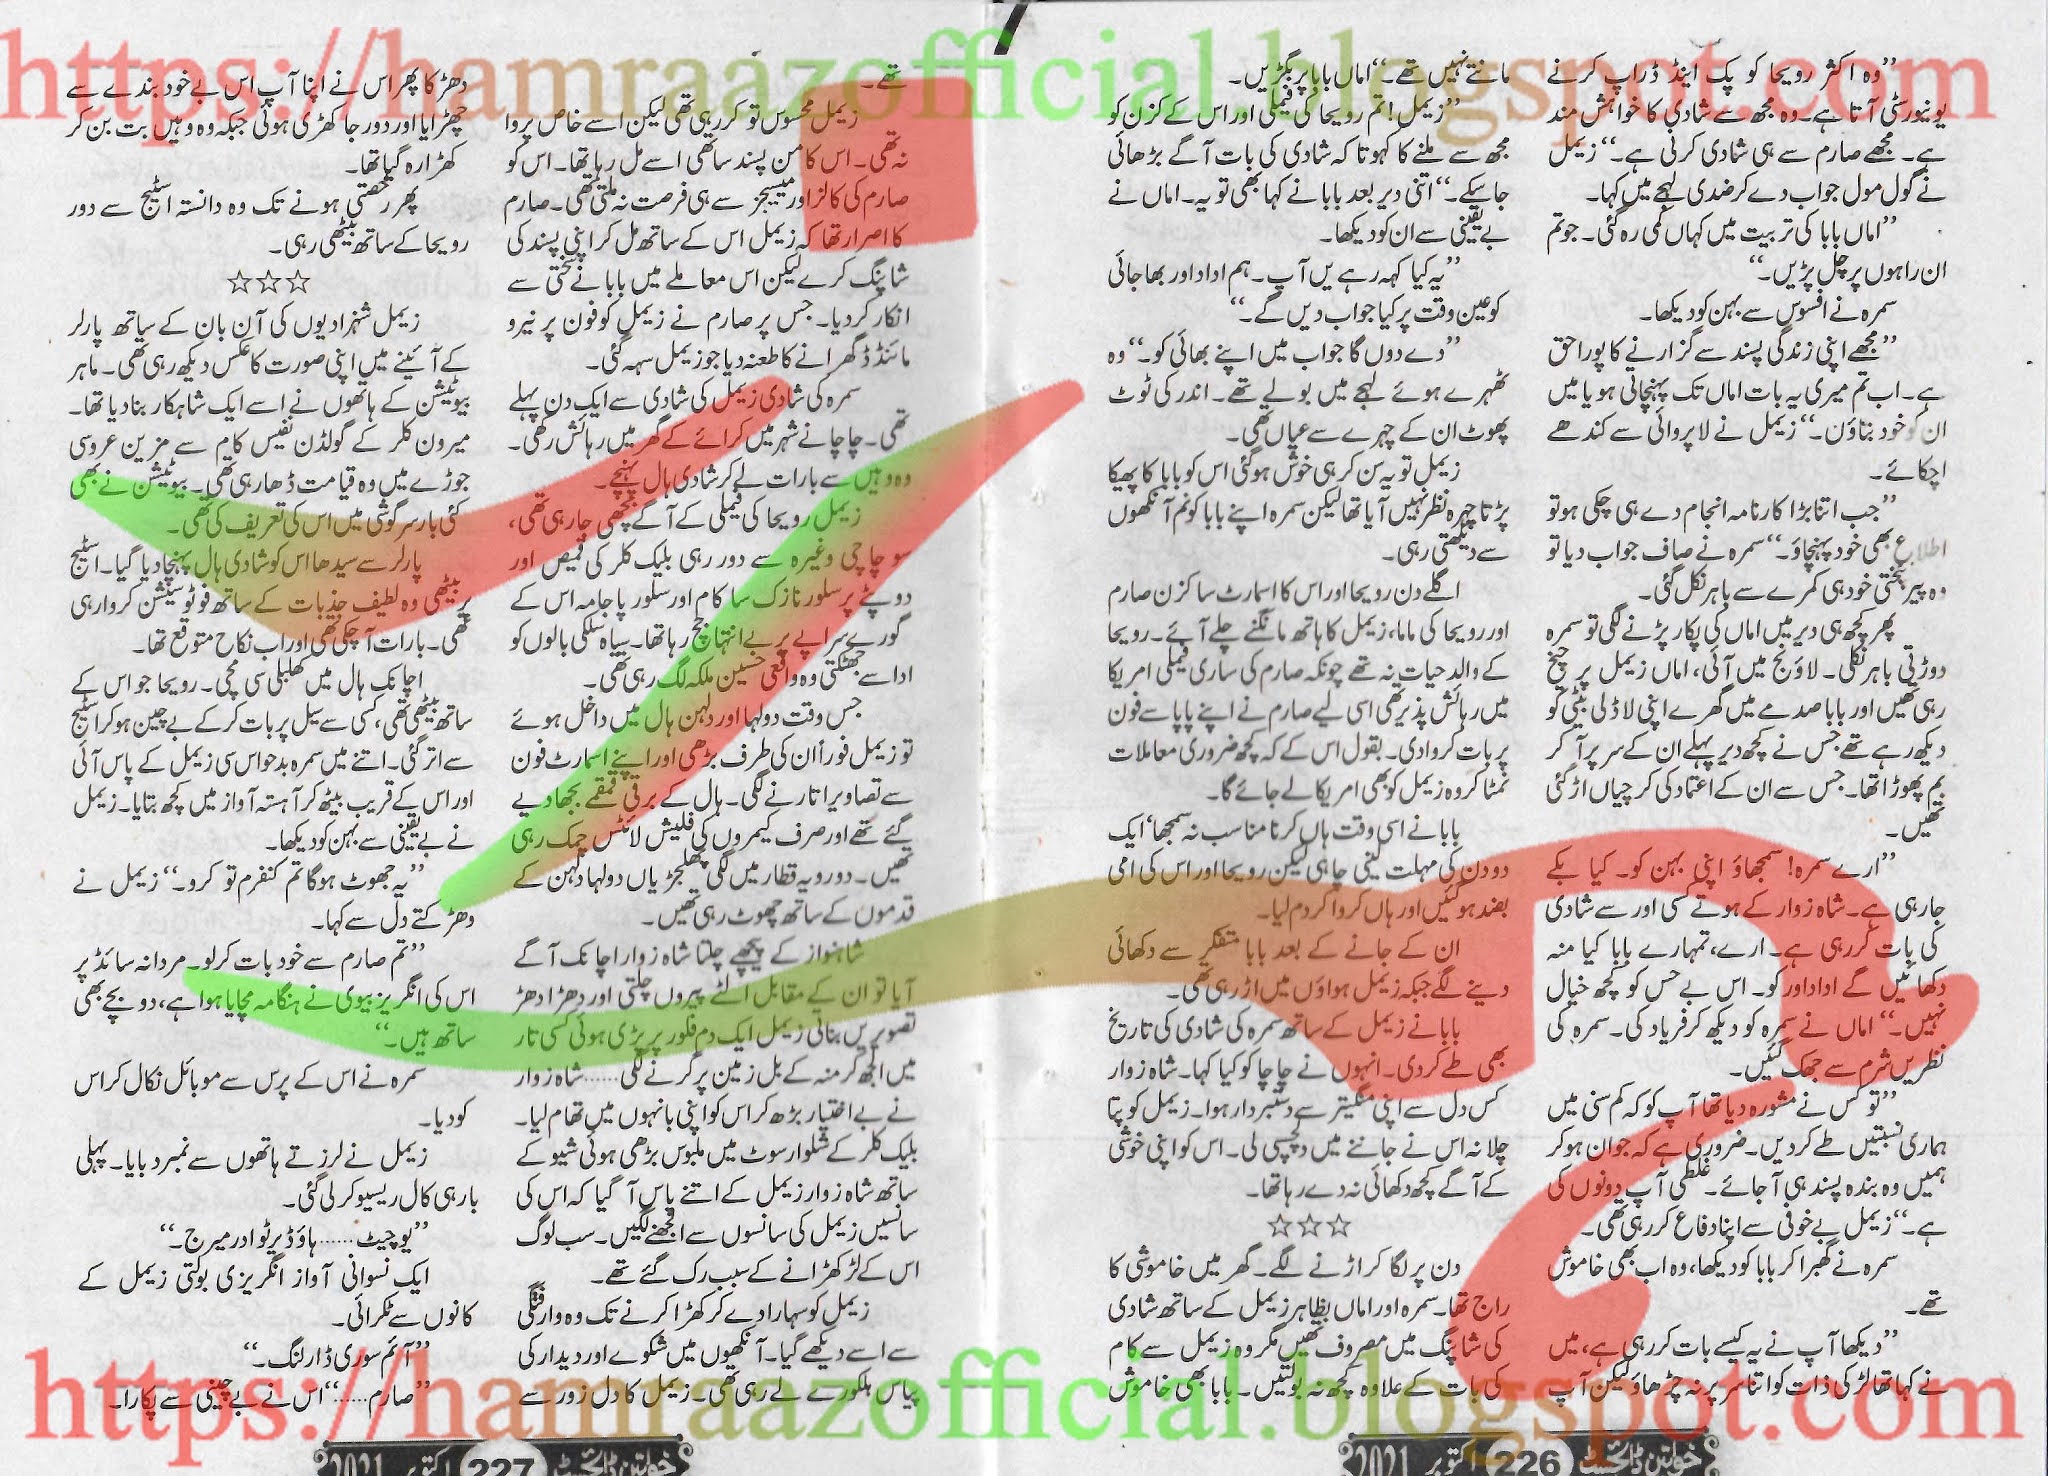 https://hamraazofficial.blogspot.com
’’وہ اکثر رویحا کو پک اینڈ ڈراپ کرنے
یونیورسٹی آتا ہے۔ وہ مجھ سے شادی کا خواہش مند
ہے۔ مجھے صارم سے ہی شادی کرنی ہے۔‘‘ زیمل
نے گول مول جواب دے کر ضدی لہجے میں کہا۔
’’اماں بابا کی تربیت میں کہاں کمی رہ گئی۔ جو تم
ان راہوں پر چل پڑیں۔‘‘
سمرہ نے افسوس سے بہن کو دیکھا۔
’’مجھے اپنی زندگی پسند سے گزارنے کا پورا حق
ہے۔ اب تم میری یہ بات اماں تک پہنچاتی ہو یا میں
ان کو خود بتاؤں۔‘‘ زیمل نے لاپروائی سے کندھے
اچکائے۔
’’جب اتنا بڑا کارنامہ انجام دے ہی چکی ہو تو
اطلاع بھی خود پہنچاؤ۔‘‘ سمرہ نے صاف جواب دیا تو
وہ پیر پٹختی خود ہی کمرے سے باہر نکل گئی۔
پھر کچھ ہی دیر میں اماں کی پکار پڑنے لگی تو سمرہ
دوڑتی باہر نکلی۔ لاؤنج میں آئی، اماں زیمل پر چیخ
رہی تھیں اور بابا صدمے میں گھرے اپنی لاڈلی بیٹی کو
دیکھ رہے تھے جس نے کچھ دیر پہلے ان کے سر پر آ کر
بم پھوڑا تھا۔ جس سے ان کے اعتماد کی کرچیاں اڑ گئی
تھیں۔
’’ارے سمرہ! سمجھاؤ اپنی بہن کو۔ کیا بکے
جا رہی ہے۔ شاہ زوار کے ہوتے کسی اور سے شادی
کی بات کر رہی ہے۔ ارے، تمہارے بابا کیا منہ
دکھائیں گے اوداد اور کو۔ اس بے حس کو کچھ خیال
نہیں۔‘‘ اماں نے سمرہ کو دیکھ کر فریاد کی۔ سمرہ کی
نظریں شرم سے جھک گئیں۔
’’تو کس نے مشورہ دیا تھا آپ کو کہ کم سنی میں
ہماری نسبتیں طے کر دیں۔ ضروری ہے کہ جوان ہو کر
ہمیں وہ بندہ پسند ہی آ جائے۔ غلطی آپ دونوں کی
ہے۔‘‘ زیمل بے خوفی سے اپنا دفاع کر رہی تھی۔
سمرہ نے گھبرا کر بابا کو دیکھا، وہ اب بھی خاموش
تھے۔
’’دیکھا آپ نے یہ کیسے بات کر رہی ہے، میں
نے کہا تھا لڑکی ذات کو اتنا سر پر نہ چڑھاؤ لیکن آپ
مانتے نہیں تھے۔‘‘ اماں بابا پر بگڑیں۔
’’زیمل! تم رویحا کی فیملی اور اس کے کزن کو
مجھ سے ملنے کا کہو تا کہ شادی کی بات آگے بڑھائی
جا سکے۔‘‘ اتنی دیر بعد بابا نے کہا بھی تو یہ۔ اماں نے
بے یقینی سے ان کو دیکھا۔
’’یہ کیا کہہ رہے ہیں آپ۔ ہم اوداد اور بھا جائی
کو عین وقت پر کیا جواب دیں گے۔‘‘
’’دے دوں گا جواب میں اپنے بھائی کو۔‘‘ وہ
ٹھہرے ہوئے لہجے میں بولے تھے۔ اندر کی ٹوٹ
پھوٹ ان کے چہرے سے عیاں تھی۔
زیمل تو یہ سن کر ہی خوش ہو گئی اس کو بابا کا پھیکا
پڑتا چہرہ نظر نہیں آیا تھا لیکن سمرہ اپنے بابا کو نم آنکھوں
سے دیکھتی رہی۔
اگلے دن رویحا اور اس کا اسمارٹ سا کزن صارم
اور رویحا کی ماما، زیمل کا ہاتھ مانگنے چلے آئے۔ رویحا
کے والد حیات نہ تھے چونکہ صارم کی ساری فیملی امریکا
میں رہائش پذیر تھی اسی لیے صارم نے اپنے پاپا سے فون
پر بات کروا دی۔ بقول اس کے کہ کچھ ضروری معاملات
نمٹا کر وہ زیمل کو بھی امریکا لے جائے گا۔
بابا نے اسی وقت ہاں کرنا مناسب نہ سمجھا‘ ایک
دو دن کی مہلت لینی چاہی لیکن رویحا اور اس کی امی
بضد ہو گئیں اور ہاں کروا کر دم لیا۔
ان کے جانے کے بعد بابا متفکر سے دکھائی
دینے لگے جبکہ زیمل ہواؤں میں اڑ رہی تھی۔
بابا نے زیمل کے ساتھ سمرہ کی شادی کی تاریخ
بھی طے کر دی۔ انہوں نے چاچا کو کیا کہا۔ شاہ زوار
کس دل سے اپنی منگیتر سے دستبردار ہوا۔ زیمل کو پتا
چلا نہ اس نے جاننے میں دلچسپی لی۔ اس کو اپنی خوشی
کے آگے کچھ دکھائی نہ دے رہا تھا۔
☆☆☆
دن پر لگا کر اڑنے لگے۔ گھر میں خاموشی کا
راج تھا۔ سمرہ اور اماں بظاہر زیمل کے ساتھ شادی
کی شاپنگ میں مصروف تھیں مگر وہ زیمل سے کام
کی بات کے علاوہ کچھ نہ بولتیں۔ بابا بھی خاموش
خواتین ڈائجسٹ 226 اکتوبر 2021
تھے۔
زیمل محسوس تو کر رہی تھی لیکن اسے خاص پروا
نہ تھی۔ اس کا من پسند ساتھی اسے مل رہا تھا۔ اس کو
صارم کی کالز اور میسیجز سے ہی فرصت نہ ملتی تھی۔ صارم
کا اصرار تھا کہ زیمل اس کے ساتھ مل کر اپنی پسند کی
شاپنگ کرے لیکن اس معاملے میں بابا نے سختی سے
انکار کر دیا۔ جس پر صارم نے زیمل کو فون پر نیرو
مائنڈڈ گھرانے کا طعنہ دیا جو زیمل سہہ گئی۔
سمرہ کی شادی زیمل کی شادی سے ایک دن پہلے
تھی۔ چاچا نے شہر میں کرائے کے گھر میں رہائش رکھی۔
وہ وہیں سے بارات لے کر شادی ہال پہنچے۔
زیمل رویحا کی فیملی کے آگے بچھی جا رہی تھی،
سو چاچی وغیرہ سے دور رہی بلیک کلر کی قمیص اور
دوپٹے پر سلور نازک سا کام اور سلور پاجامہ اس کے
گورے سراپے پر بے انتہا جچ رہا تھا۔ سیاہ سلکی بالوں کو
ادا سے جھٹکتی وہ واقعی حسین ملکہ لگ رہی تھی۔
جس وقت دولہا اور دلہن ہال میں داخل ہوئے
تو زیمل فوراً ان کی طرف بڑھی اور اپنے اسمارٹ فون
سے تصاویر اتارنے لگی۔ ہال کے برقی قمقمے بجھا دیے
گئے تھے اور صرف کیمروں کی فلیش لائٹس چمک رہی
تھیں۔ دو رویہ قطار میں لگی پھلجڑیاں دولہا دلہن کے
قدموں کے ساتھ چھوٹ رہی تھیں۔
شاہنواز کے پیچھے چلتا شاہ زوار اچانک آگے
آیا تو ان کے مقابل الٹے پیروں چلتی اور دھڑا دھڑ
تصویریں بناتی زیمل ایک دم فلور پر پڑی ہوئی کسی تار
میں الجھ کر منہ کے بل زمین پر گرنے لگی...... شاہ زوار
نے بے اختیار بڑھ کر اس کو اپنی بانہوں میں تھام لیا۔
بلیک کلر کے شلوار سوٹ میں ملبوس بڑھی ہوئی شیو کے
ساتھ شاہ زوار زیمل کے اتنے پاس آ گیا کہ اس کی
سانسیں زیمل کی سانسوں سے الجھنے لگیں۔ سب لوگ
اس کے لڑکھڑانے کے سبب رک گئے تھے۔
زیمل کو سہارا دے کر کھڑا کرنے تک وہ وارفتگی
سے اسے دیکھے گیا۔ آنکھوں میں شکوے اور دیدار کی
پیاس ہلکورے لے رہی تھی۔ زیمل کا دل زور سے
دھڑکا پھر اس نے اپنا آپ اس بے خود بندے سے
چھڑایا اور دور جا کھڑی ہوئی جبکہ وہ وہیں بت بن کر
کھڑا رہ گیا تھا۔
پھر رخصتی ہونے تک وہ دانستہ اسٹیج سے دور
رویحا کے ساتھ بیٹھی رہی۔
☆☆☆
زیمل شہزادیوں کی آن بان کے ساتھ پارلر
کے آئینے میں اپنی صورت کا عکس دیکھ رہی تھی۔ ماہر
بیوٹیشن کے ہاتھوں نے اسے ایک شاہکار بنا دیا تھا۔
میرون کلر کے گولڈن نفیس کام سے مزین عروسی
جوڑے میں وہ قیامت ڈھا رہی تھی۔ بیوٹیشن نے بھی
کئی بار سرگوشی میں اس کی تعریف کی تھی۔
پارلر سے سیدھا اس کو شادی ہال پہنچا دیا گیا۔ اسٹیج
پر بیٹھی وہ لطیف جذبات کے ساتھ فوٹو سیشن کروا رہی
تھی۔ بارات آ چکی تھی اور اب نکاح متوقع تھا۔
اچانک ہال میں کھلبلی سی مچی۔ رویحا جو اس کے
ساتھ بیٹھی تھی، کسی سے سیل پر بات کر کے بے چین ہو کر اسٹیج
سے اتر گئی۔ اتنے میں سمرہ بدحواس سی زیمل کے پاس آئی
اور اس کے قریب بیٹھ کر آہستہ آواز میں کچھ بتایا۔ زیمل
نے بے یقینی سے بہن کو دیکھا۔
’’یہ جھوٹ ہو گا تم کنفرم تو کرو۔‘‘ زیمل نے
دھڑکتے دل سے کہا۔
’’تم صارم سے خود بات کر لو۔ مردانہ سائڈ پر
اس کی انگریز بیوی نے ہنگامہ مچایا ہوا ہے، دو بچے بھی
ساتھ ہیں۔‘‘
سمرہ نے اس کے پرس سے موبائل نکال کر اس
کو دیا۔
زیمل نے لرزتے ہاتھوں سے نمبر دبایا۔ پہلی
بار ہی کال ریسیو کر لی گئی۔
’’یو چیٹ...... ہاؤ ڈیر ٹو ادر میرج۔‘‘
ایک نسوانی آواز انگریزی بولتی زیمل کے
کانوں سے ٹکرائی۔
’’آئم سوری ڈارلنگ۔‘‘
’’صارم......‘‘ اس نے بے چینی سے پکارا۔
خواتین ڈائجسٹ 227 اکتوبر 2021
https://hamraazofficial.blogspot.com